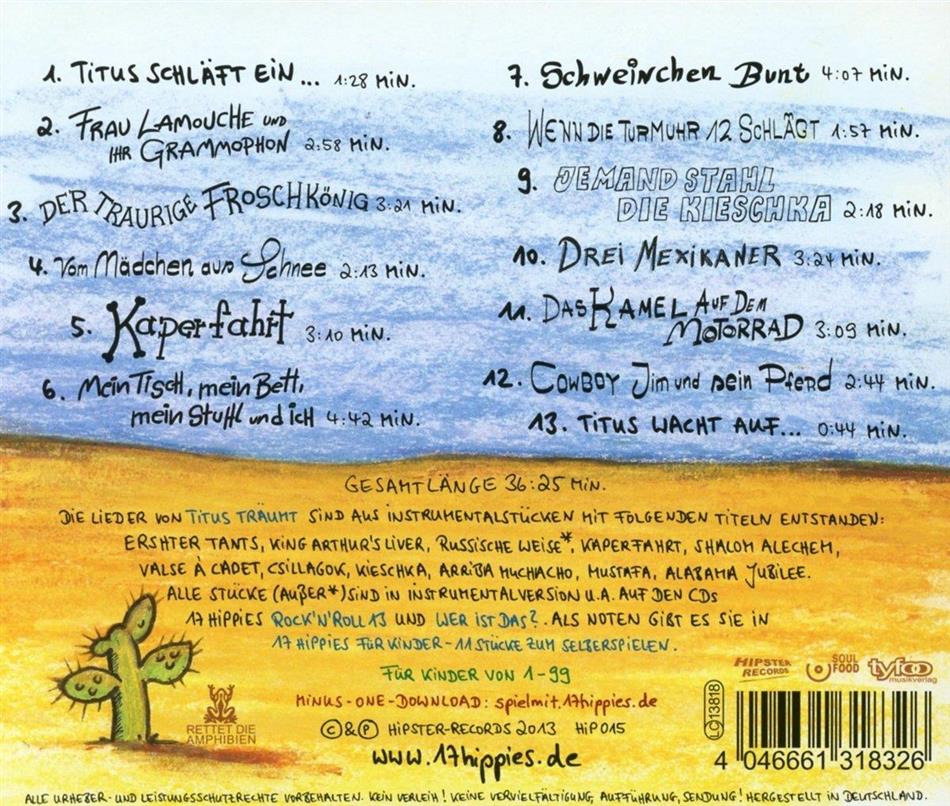 1. Titus schläft ein... 1:28 min.
2. Frau Lamouche und
ihr Grammophon 2:58 min.
3. Der traurige Froschkönig 3:21 min.
4. Vom Mädchen aus Schnee 2:13 min.
5. Kaperfahrt 3:10 min.
6. Mein Tisch, mein Bett,
mein Stuhl und ich 4:42 min.
7. Schweinchen Bunt 4:07 min.
8. Wenn die Turmuhr 12 schlägt 1:57 min.
9. Jemand stahl
die Kieschka 2:18 min.
10. Drei Mexikaner 3:24 min.
11. Das Kamel auf dem
Motorrad 3:09 min.
12. Cowboy Jim und sein Pferd 2:44 min.
13. Titus wacht auf... 0:44 min.
Gesamtlänge 36:25 min.
Die Lieder von Titus träumt sind aus Instrumentalstücken mit folgenden Titeln entstanden:
Ershter Tants, King Arthur's Liver, Russische Weise*, Kaperfahrt, Shalom Alechem,
Valse à Cadet, Csillagok, Kieschka, Arriba Muchacho, Mustafa, Alabama Jubilee.
Alle Stücke (außer*) sind in Instrumentalversion u.a. auf den CDs
17 Hippies Rock'n'Roll 13 und Wer ist das? . Als Noten gibt es sie in
17 Hippies für Kinder - 11 Stücke zum Selberspielen.
Für Kinder von 1-99
Minus-One-Download: spielmit.17hippies.de
© & ℗ Hipster-Records 2013 HIP015
www.17hippies.de
RETTET DIE
AMPHIBIEN
HIPSTER
RECORDS
SOUL
FOOD
tyfoo
musikverlag
LC13818
4 046661 318326
Alle Urheber- und Leistungsschutzrechte vorbehalten. Kein Verleih! Keine Vervielfältigung, Aufführung, Sendung! Hergestellt in Deutschland.